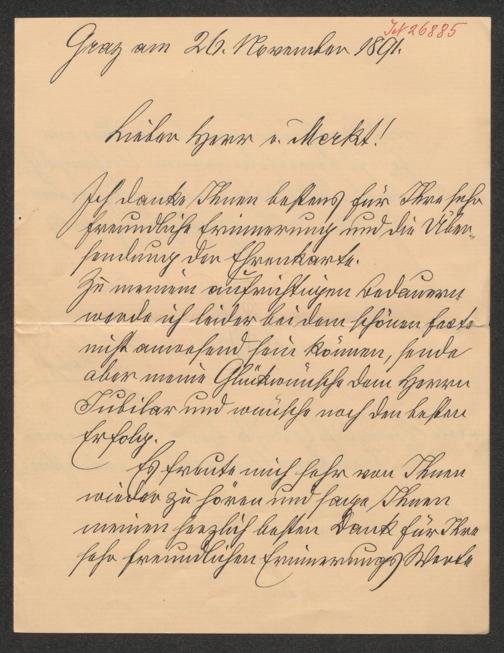 JN 26885
Graz am 26. November 1891.
Lieber Herr v. Merkt!
Ich danke Ihnen bestens für Ihre sehr
freundliche Erinnerung und die Über-
sendung der Ehrenkarte.
Zu meinem aufrichtigen Bedauern
werde ich leider bei dem schönen Feste
nicht anwesend sein können, sende
aber meine Glückwünsche dem Herrn
Jubilar und wünsche noch den besten
Erfolg.
Es freute mich sehr von Ihnen
wieder zu hören und sage Ihnen
meinen herzlich besten Dank für Ihre
sehr freundlichen Erinnerungs Worte